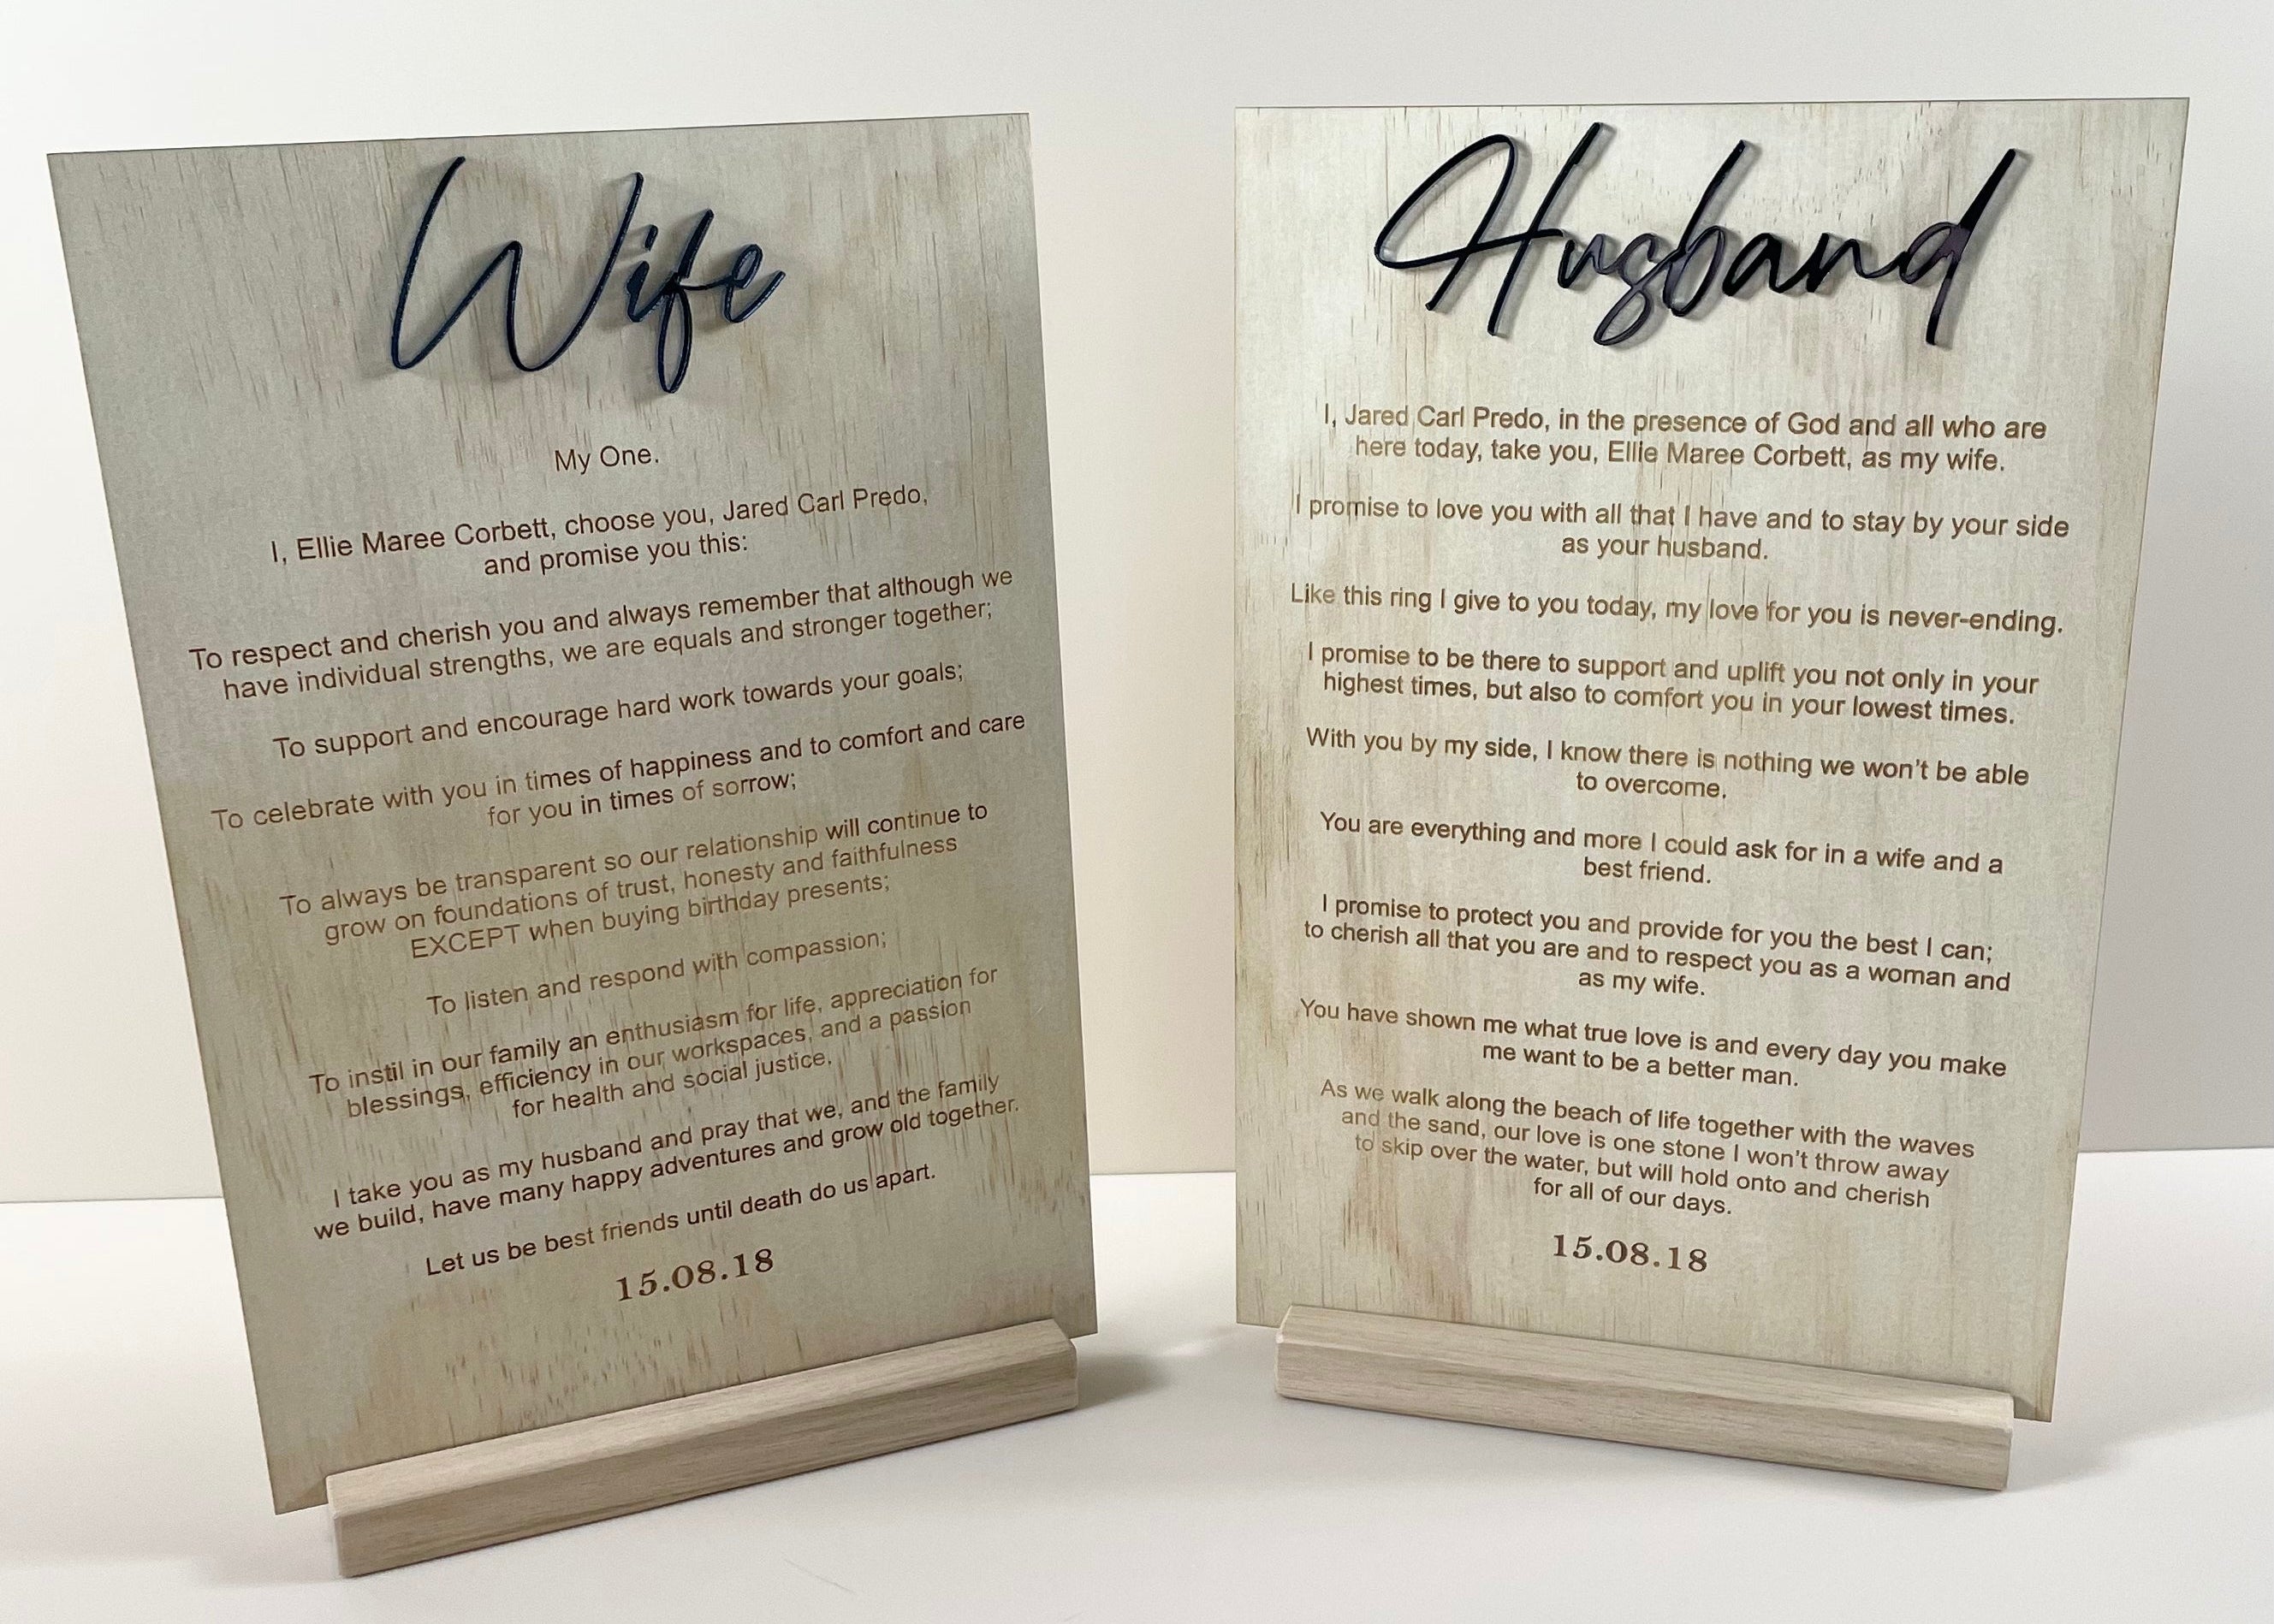 Wife
My One.
I, Ellie Maree Corbett, choose you, Jared Carl Predo,
and promise you this:
To respect and cherish you and always remember that although we
have individual strengths, we are equals and stronger together;
To support and encourage hard work towards your goals;
To celebrate with you in times of happiness and to comfort and care
for you in times of sorrow;
To always be transparent so our relationship will continue to
grow on foundations of trust, honesty and faithfulness
EXCEPT when buying birthday presents;
To listen and respond with compassion;
To instil in our family an enthusiasm for life, appreciation for
blessings, efficiency in our workspaces, and a passion
for health and social justice.
I take you as my husband and pray that we, and the family
we build, have many happy adventures and grow old together.
Let us be best friends until death do us apart.
15.08.18
Husband
I, Jared Carl Predo, in the presence of God and all who are
here today, take you, Ellie Maree Corbett, as my wife.
I promise to love you with all that I have and to stay by your side
as your husband.
Like this ring I give to you today, my love for you is never-ending.
I promise to be there to support and uplift you not only in your
highest times, but also to comfort you in your lowest times.
With you by my side, I know there is nothing we won't be able
to overcome.
You are everything and more I could ask for in a wife and a
best friend.
I promise to protect you and provide for you the best I can;
to cherish all that you are and to respect you as a woman and
as my wife.
You have shown me what true love is and every day you make
me want to be a better man.
As we walk along the beach of life together with the waves
and the sand, our love is one stone I won't throw away
to skip over the water, but will hold onto and cherish
for all of our days.
15.08.18